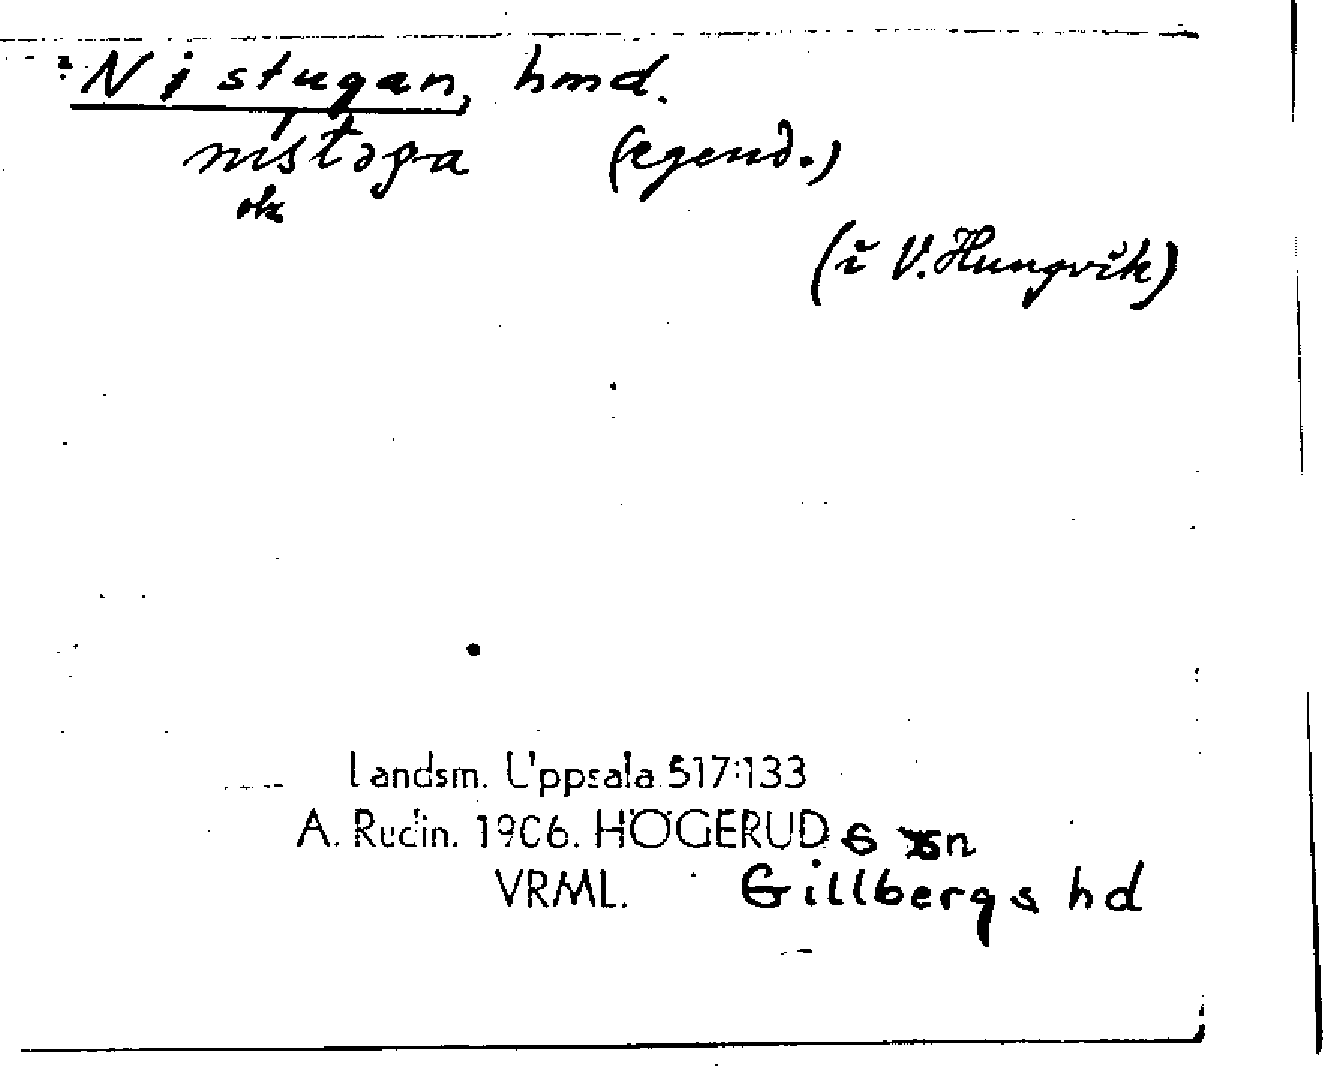 Nistugan, hmd.
nístoga (egend.)
ok
(i V. Hungvik)
Landsm. Uppsala 517:133
A. Rudin. 1906. HÖGERUDS sn
VRML. Gillbergs hd